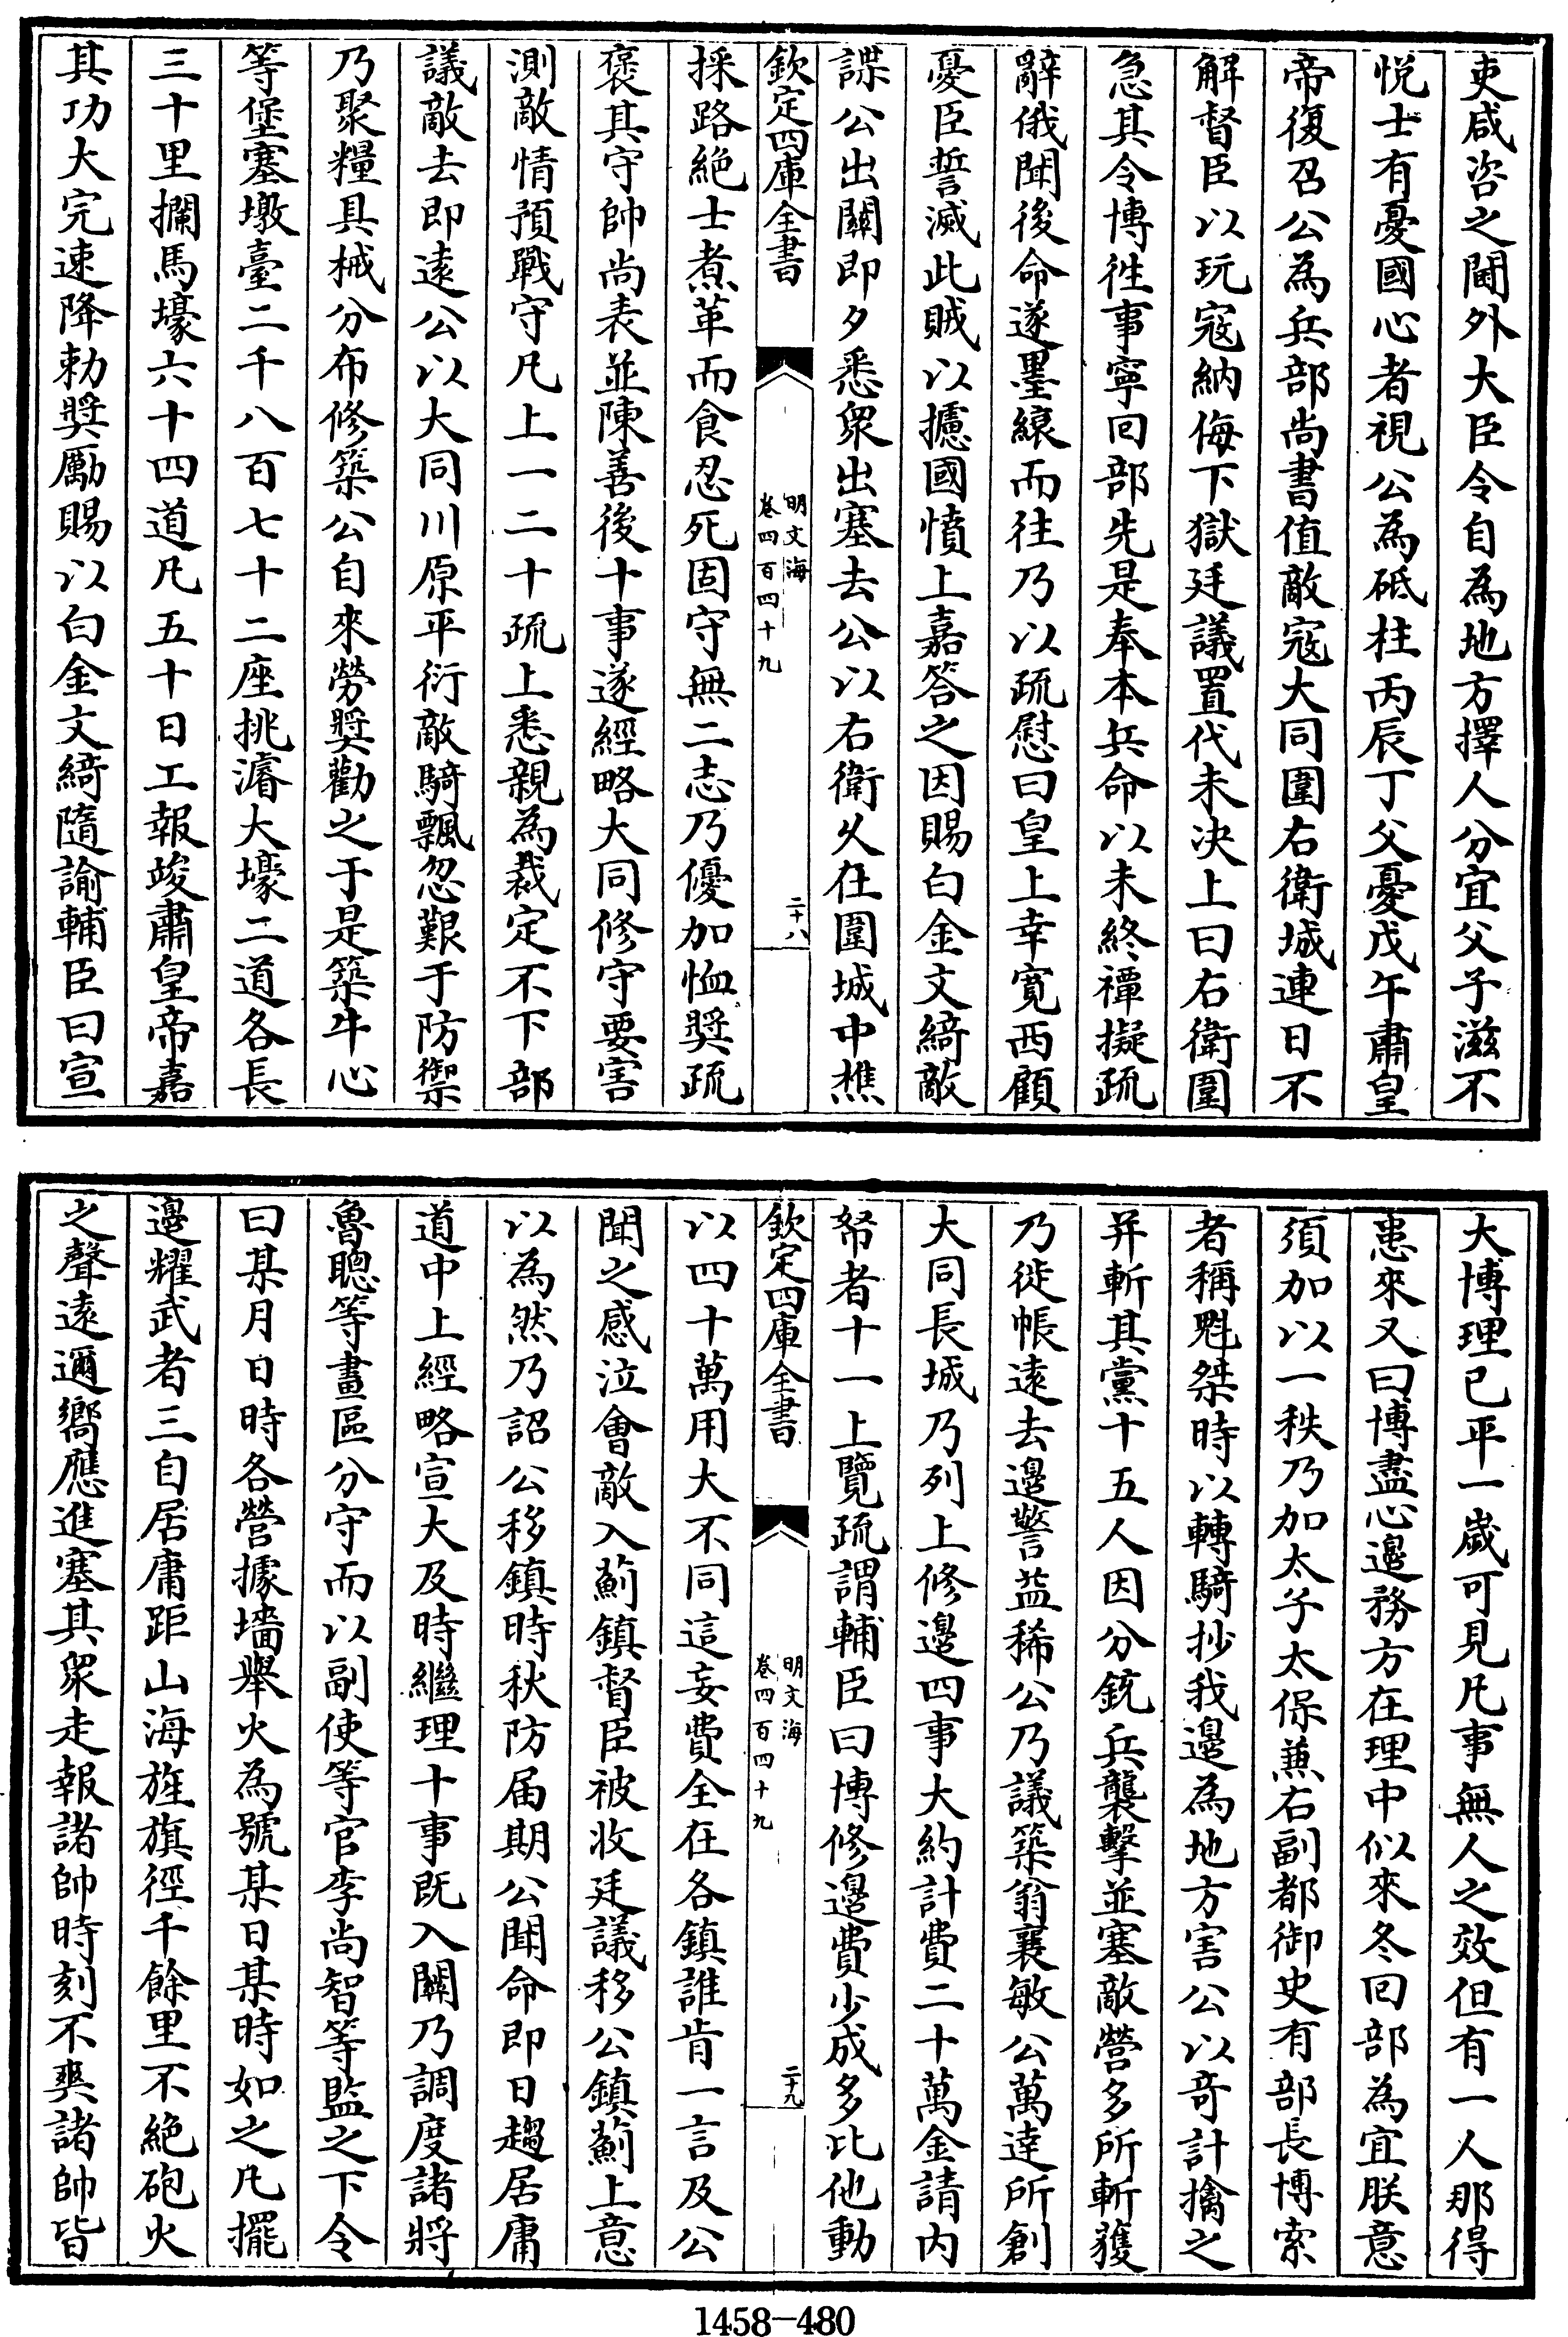 吏咸咨之閫外大臣令自為地方擇人分宜父子滋不
悦士有憂國心者視公為砥柱丙辰丁父憂戊午肅皇
帝復召公為兵部尚書值敵寇大同圍右衛城連日不
解督臣以玩寇納侮下獄廷議置代未决上曰右衛圍
急其令博徃事寧回部先是奉本兵命以未終禫擬疏
辭俄聞後命遂墨縗而往乃以疏慰曰皇上幸寛西顧
憂臣誓滅此賊以攄國憤上嘉答之因賜白金文綺敵
諜公出關即夕悉衆出塞去公以右衛乆在圍城中樵
欽定四庫全書
明文海
卷四百四十九
二十八
採路絶士煮革而食忍死固守無二志乃優加恤奬疏
褒其守帥尚表並陳善後十事遂經略大同修守要害
測敵情預戰守凡上一二十疏上悉親為裁定不下部
議敵去即逺公以大同川原平衍敵騎飄忽艱于防禦
乃聚糧具械分布修築公自來勞奬勸之于是築牛心
等堡塞墩臺二千八百七十二座挑濬大壕二道各長
三十里攔馬壕六十四道凡五十日工報竣肅皇帝嘉
其功大完速降勅奬勵賜以白金文綺隨諭輔臣曰宣
大博理已平一嵗可見凡事無人之效但有一人那得
患來又曰博盡心邉務方在理中似來冬回部為宜朕意
須加以一秩乃加太子太保兼右副都御史有部長博索
者稱魁桀時以轉騎抄我邉為地方害公以奇計擒之
并斬其黨十五人因分銃兵襲擊並塞敵營多所斬獲
乃徙帳逺去邉警益稀公乃議築翁襄敏公萬逹所創
大同長城乃列上修邉四事大約計費二十萬金請内
帑者十一上覽疏謂輔臣曰博修邉費少成多比他動
欽定四庫全書
明文海
卷四百四十九
二十九
以四十萬用大不同這妄費全在各鎮誰肯一言及公
聞之感泣會敵入薊鎮督臣被收廷議移公鎮薊上意
以為然乃詔公移鎮時秋防届期公聞命即日趨居庸
道中上經略宣大及時繼理十事既入關乃調度諸將
魯聰等畫區分守而以副使等官李尚智等監之下令
曰某月日時各營據墻舉火為號某日某時如之凡擺
邉耀武者三自居庸距山海旌旗徑千餘里不絶砲火
之聲逺邇嚮應進塞其衆走報諸帥時刻不爽諸帥皆
1458-480